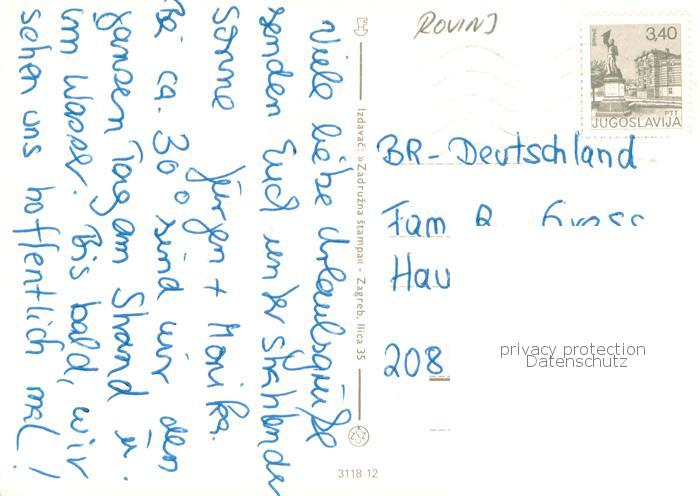 Viele liebe Urlaubsgrüße
senden Euch unter strahlender
Sonne
Jürgen + Monika.
Bei ca. 30° sind wir den
ganzen Tag am Strand u.
im Wasser. Bis bald, wir
sehen uns hoffentlich mal!
Izdavač: »Zadružna štampa« - Zagreb, Ilica 35
3118-12
ROVINJ
3,40
PTT
JUGOSLAVIJA
BR-Deutschland
Fam
Hau
208
privacy protection
Datenschutz